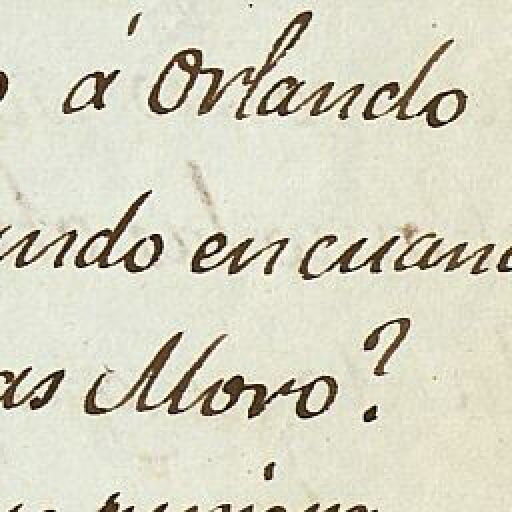 á Orlando
ndo en cuand
as Moro?